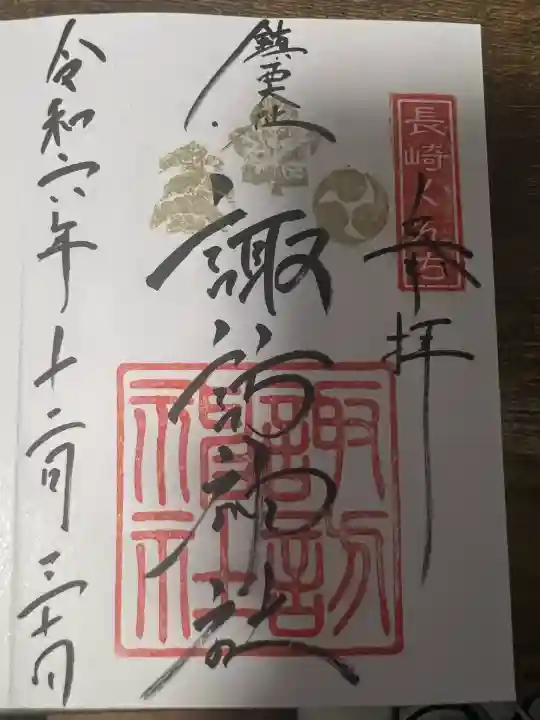 長崎くんち
奉拝
鎮西大社
諏訪神社
諏訪神社
令和六年十二月三十日